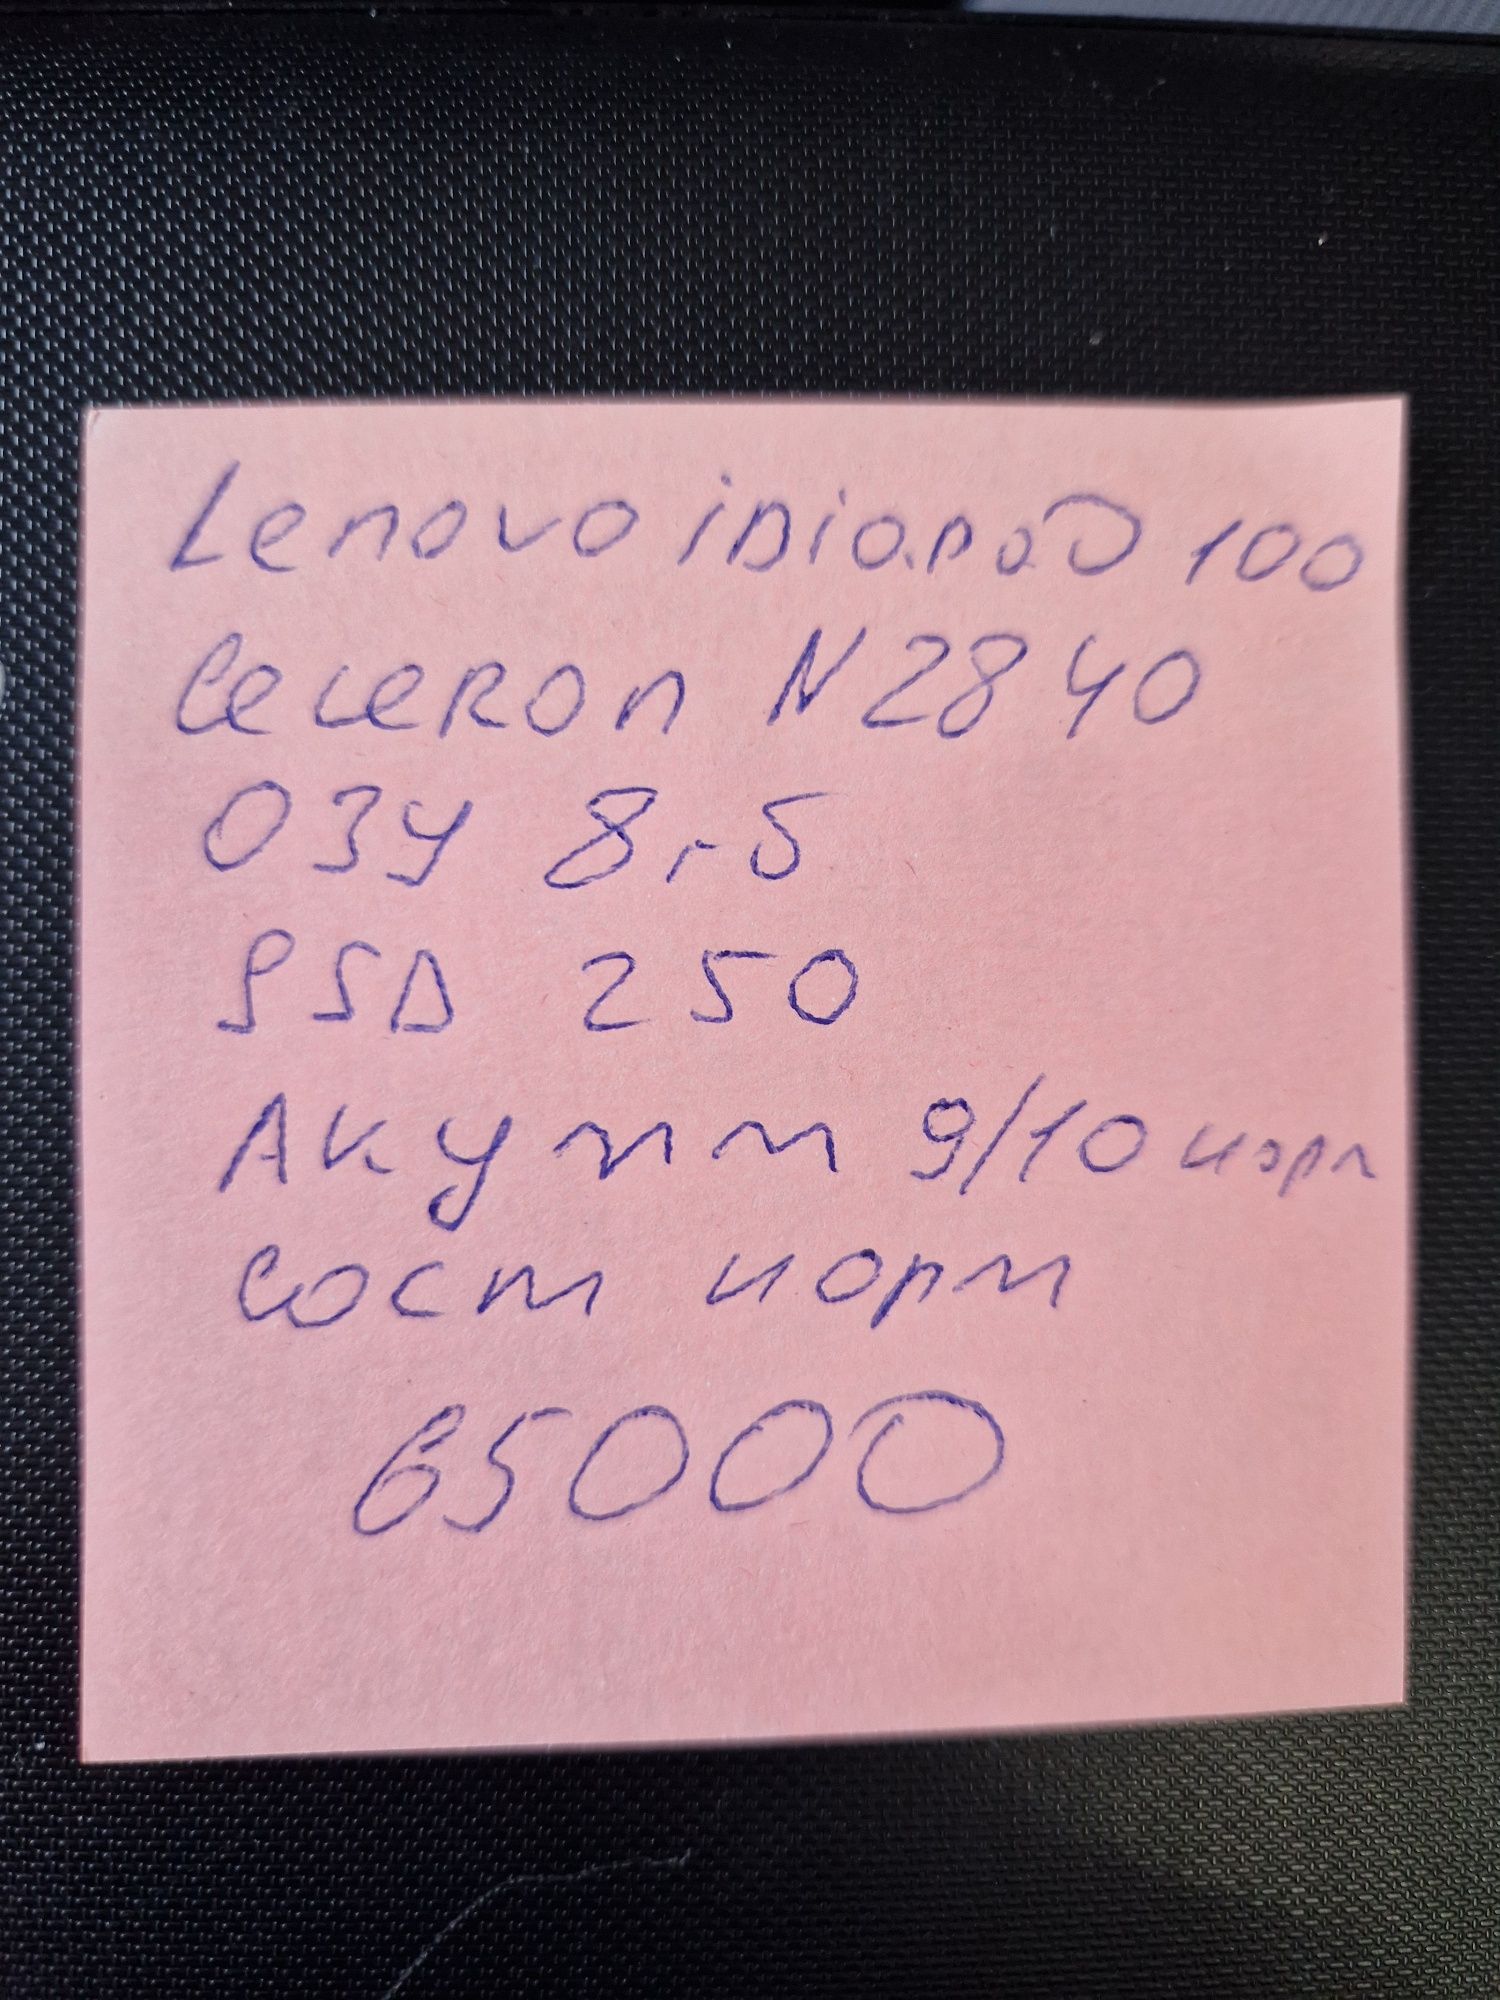 Lenovo iDiapaD 100
CeLeRon N2840
ОЗУ 8гб
SSD 250
Акумм 9/10 норм
Сост норм
65000